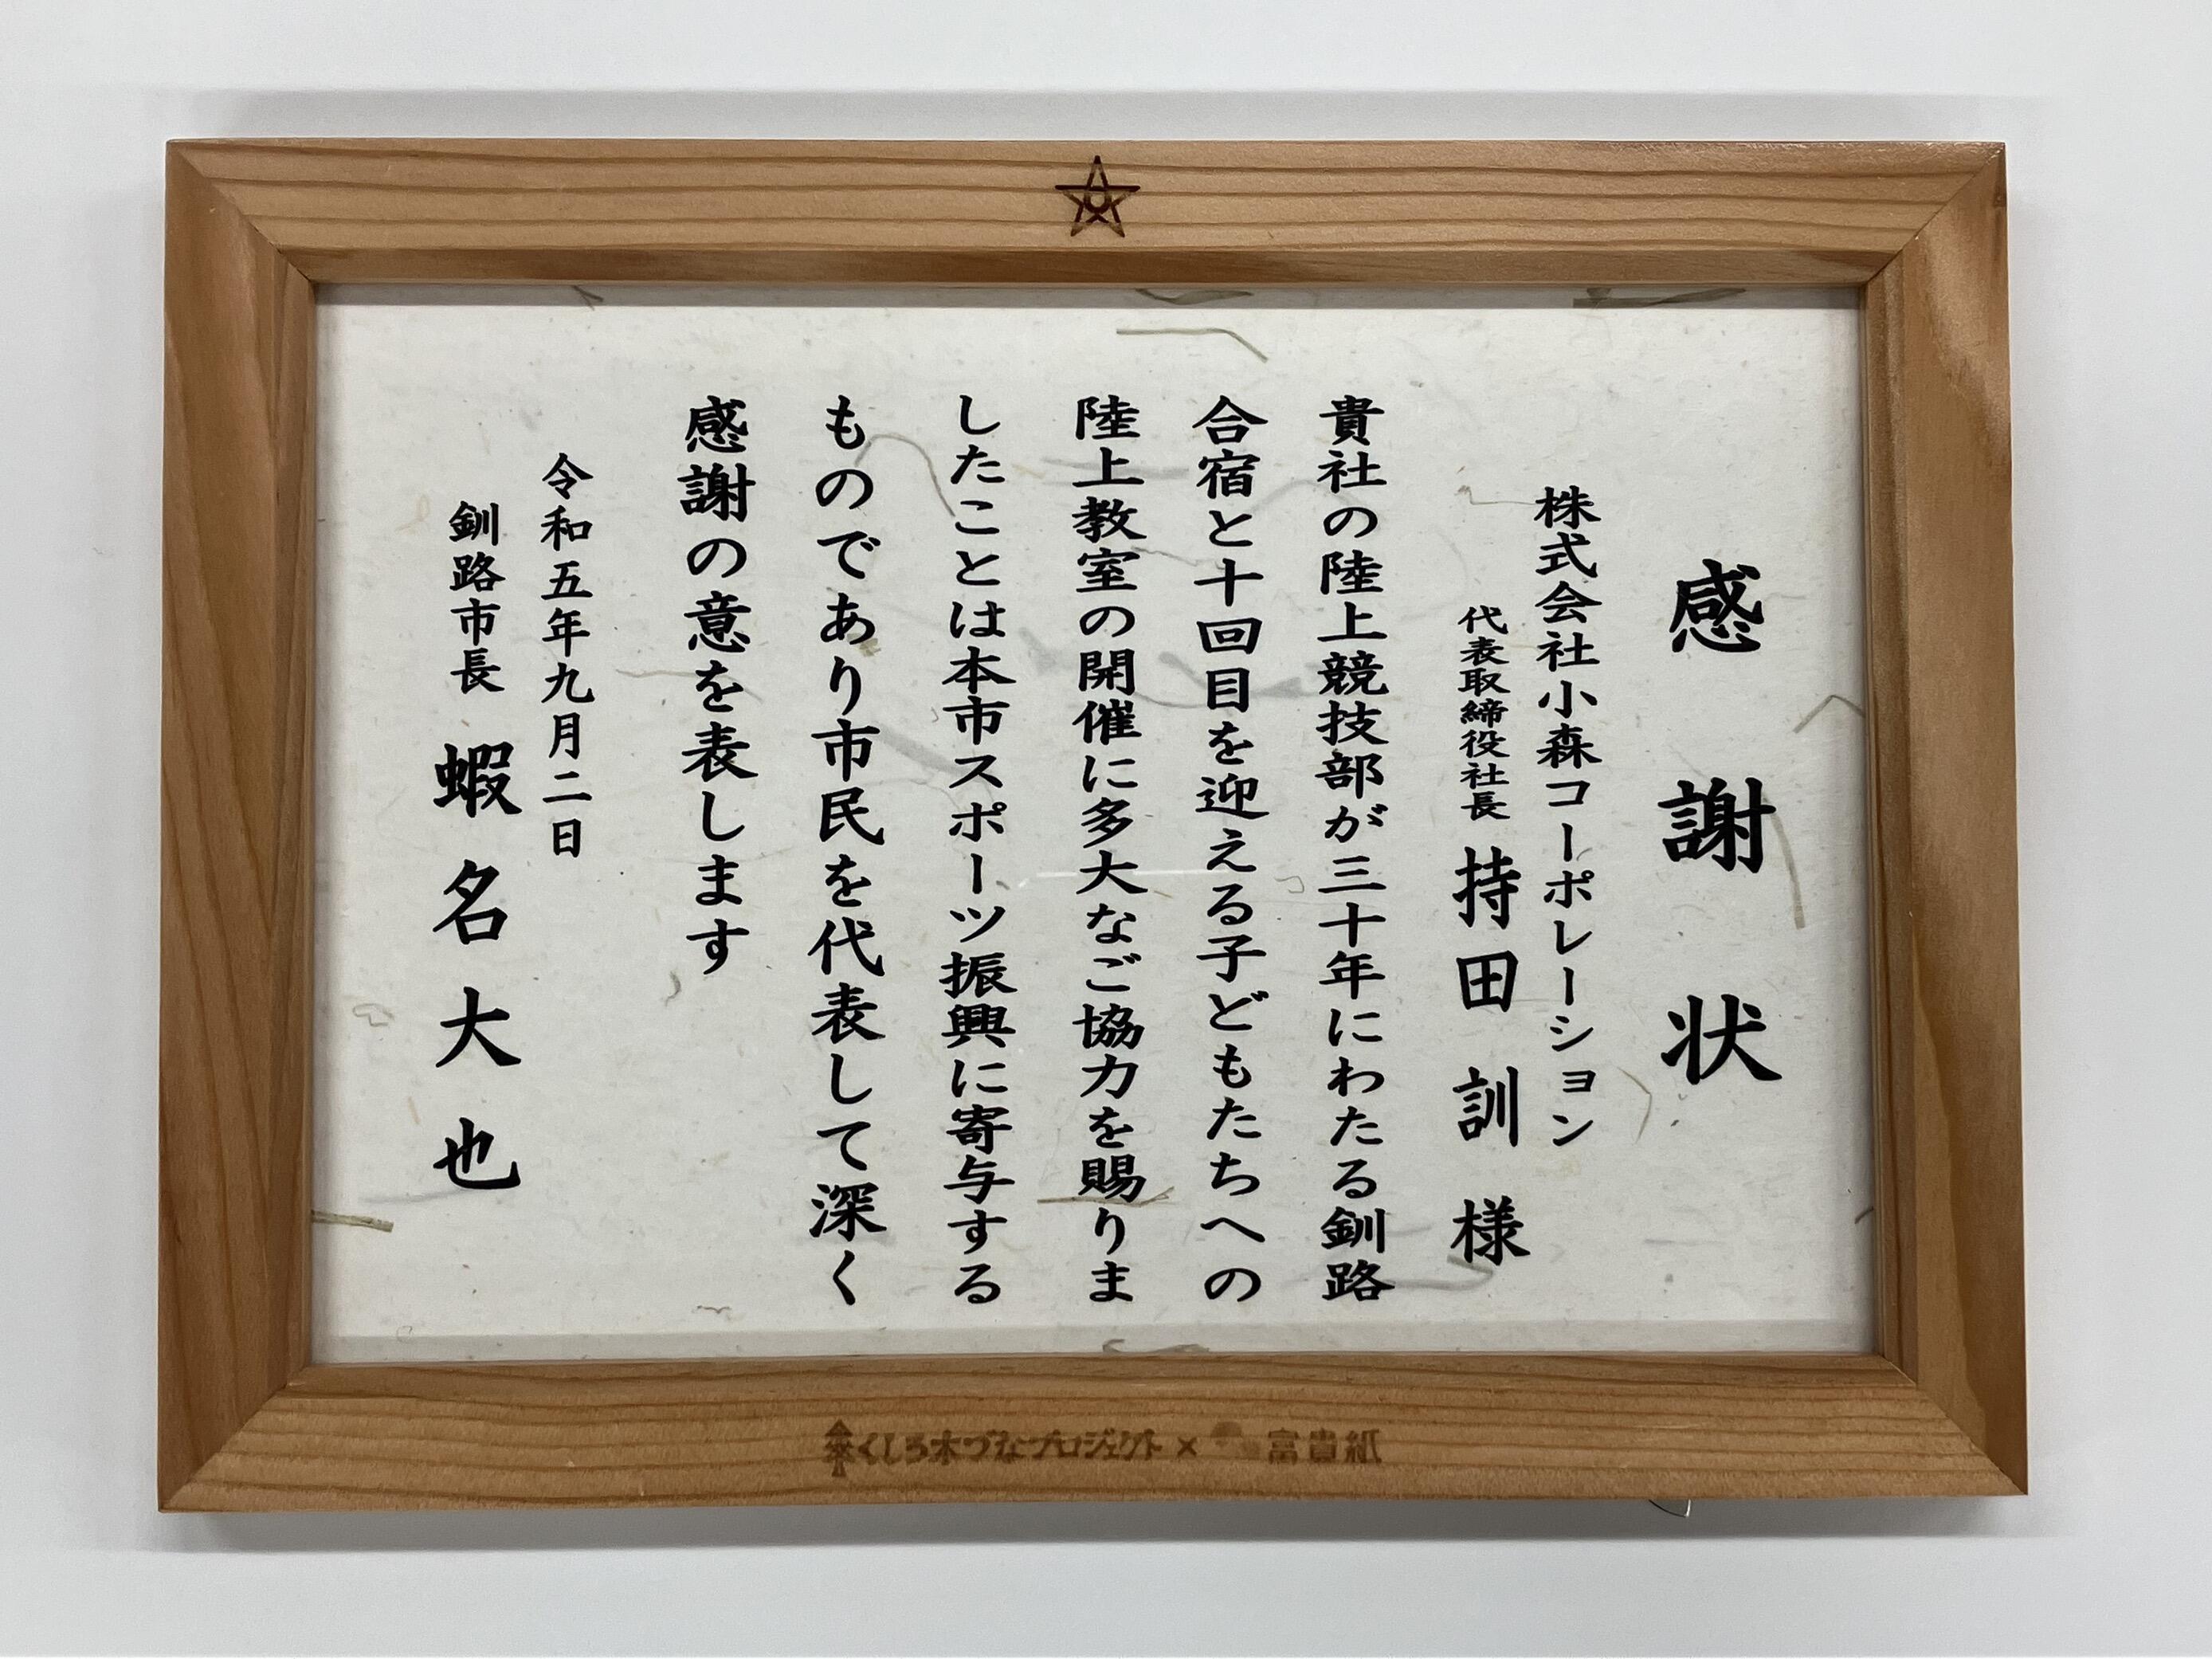 感謝状
株式会社小森コーポレーション
代表取締役社長 持田 訓 様
貴社の陸上競技部が三十年にわたる釧路
合宿と十回目を迎える子どもたちへの
陸上教室の開催に多大なご協力を賜りま
したことは本市スポーツ振興に寄与する
ものであり市民を代表して深く
感謝の意を表します
令和五年九月二日
釧路市長 蝦名大也
くしろ木づなプロジェクト × 富貴紙